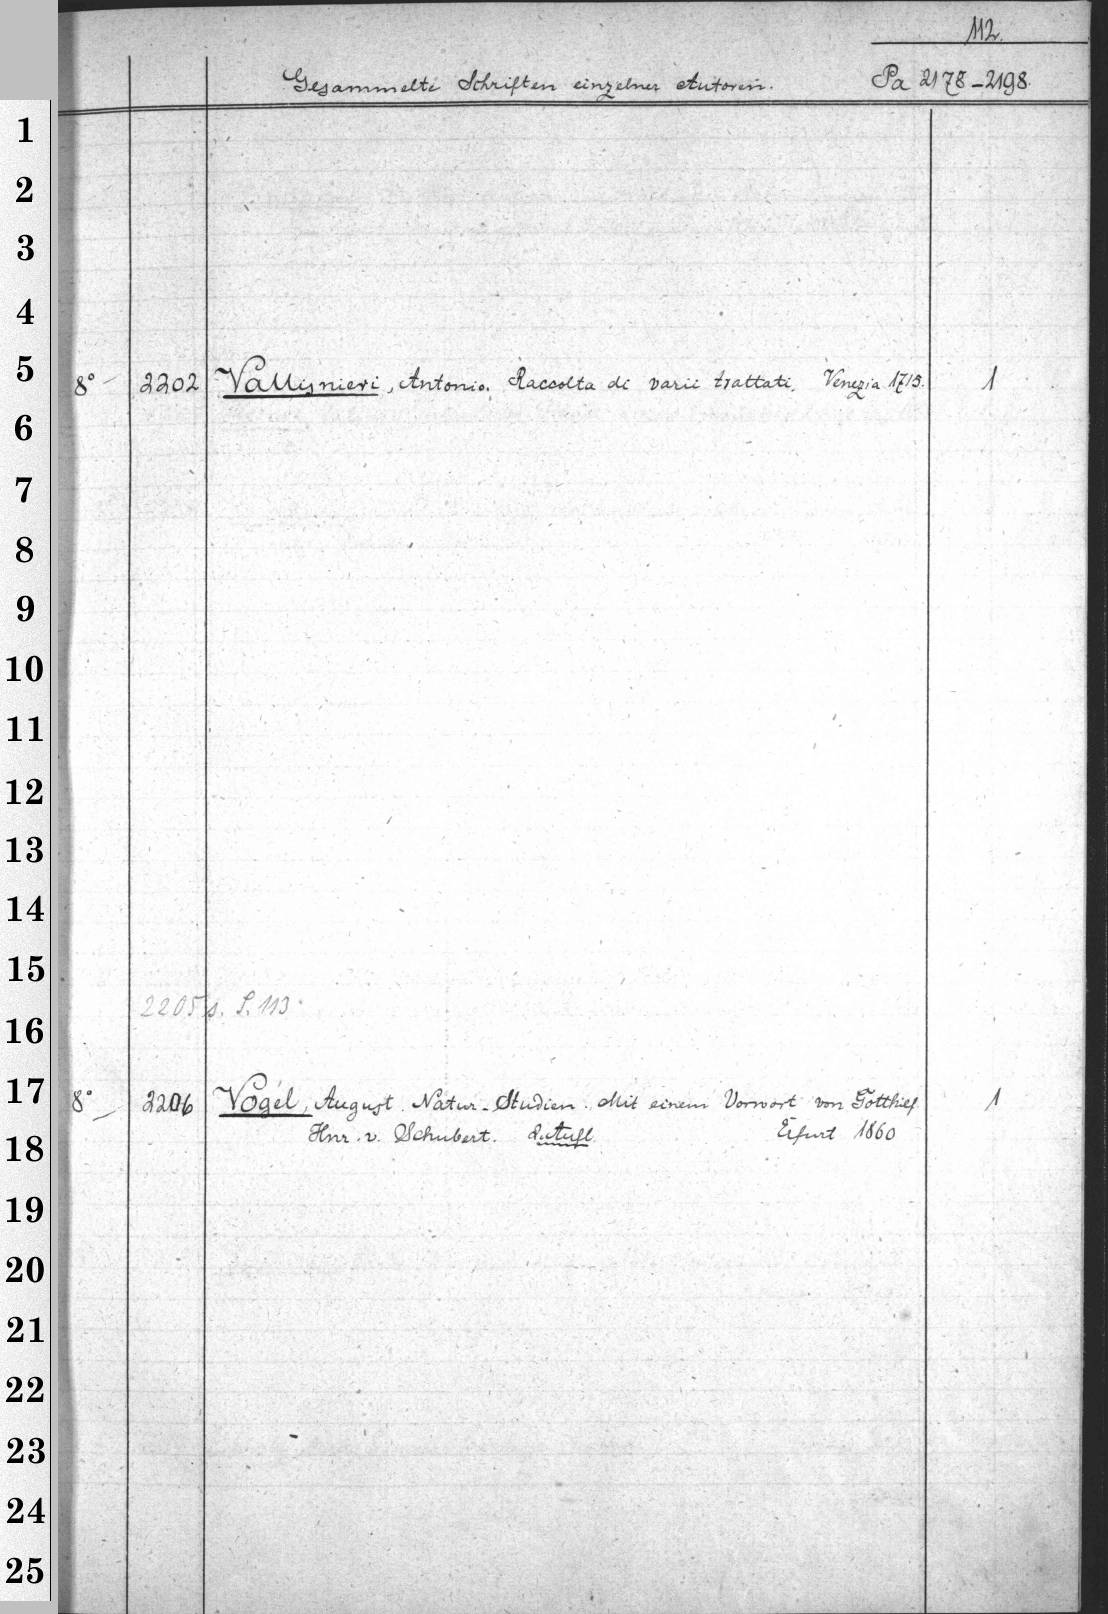 112.
Gesammelte Schriften einzelner Autoren. Pa 2178-2198.
1
2
3
4
5
8° - 2202 Vallisnieri, Antonio. Raccolta di varii trattati. Venezia 1715. 1
6
7
8
9
10
11
12
13
14
15
2205 s. S. 113.
16
17
8° - 2206 Vogel, August. Natur-Studien. Mit einem Vorwort von Gotthilf 1
Hnr. v. Schubert. 2. Aufl. Erfurt 1860
18
19
20
21
22
23
24
25